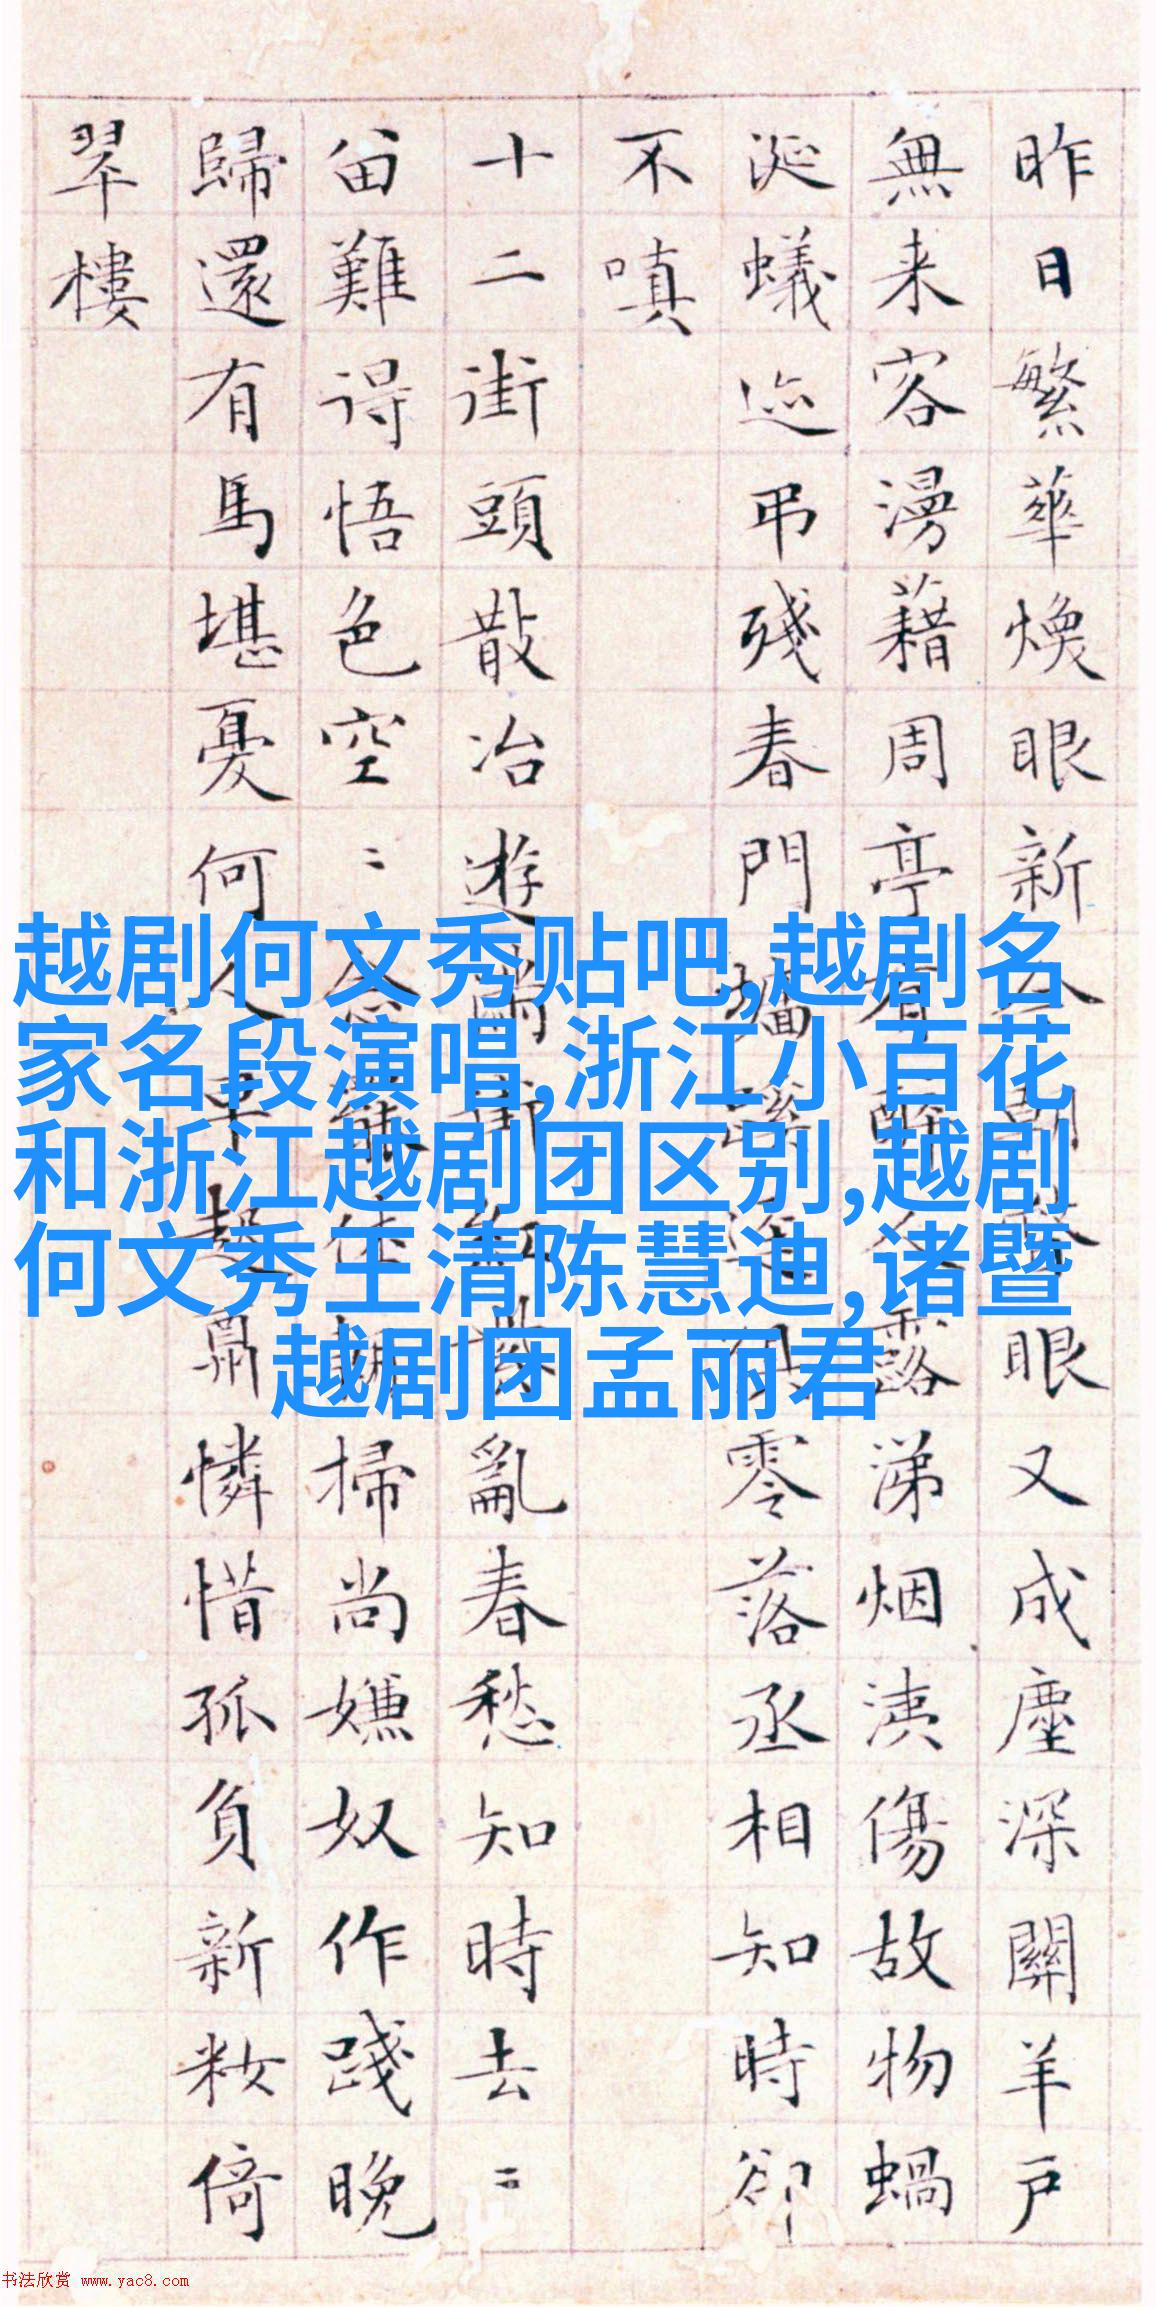 昨日繁華煥眼新眼又成塵深關羊戶
無来客漫藉周亭有醉露涕烟洟傷故物蝸
涎蟻迹弔殘春門墻零落丞相知時卻
不嗔
十二街頭散冶遊亂春愁知時去〻
畱難得悟色空〻掃尚嫌奴作踐晚
歸還有馬堪憂何人早起肩憐惜孤負新粧倚
翠樓
越剧何文秀贴吧,越剧名
家名段演唱,浙江小百花
和浙江越剧团区别,越剧
何文秀王清陈慧迪,诸暨
越剧团孟丽君
书法欣赏 www.yac8.com